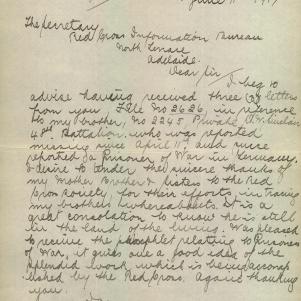 June 11 1917
The Secretary
Red Cross Information Bureau
North Terrace
Adelaide.
Dear Sir
I beg to
advise having received three (3) letters
from you File No 2626, in reference
to my brother, No 2245 Private
48th Battalion, who was reported
missing since April 11th and since
reported a Prisoner of War in Germany.
I desire to tender the sincere thanks of
my Mother Brother & Sisters to the Red
Cross Society, for their efforts in tracing
my brothers whereabouts. It is a
great consolation to know he is still
in the land of the living. Was pleased
to receive the pamphlet relating to Prisoners
of War, it gives one a good idea of the
splendid work which is being accomp
lished by the Red Cross. Again thanking
you.